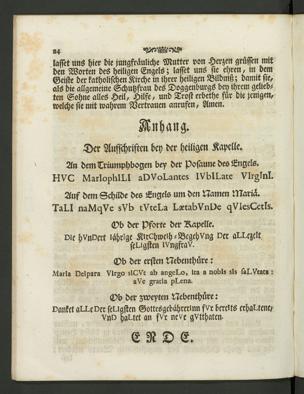 24
lasset uns hier die jungfräuliche Mutter von Herzen grüssen mit
den Worten des heiligen Engels; lasset uns sie ehren, in dem
Geiste der katholischen Kirche in ihrer heiligen Bildniß; damit sie,
als die allgemeine Schutzfrau des Doggenburgs bey ihrem geliebs-
ten Sohne alles Heil, Hilfe, und Trost erbethe für die jenigen,
welche sie mit wahrem Vertrauen anrufen, Amen.
Anhang.
Der Aufschriften bey der heiligen Kapelle.
An dem Triumphbogen bey der Posaune des Engels.
HVC MarIophILI aDVoLantes IVbILate VIrgInI.
Auf dem Schilde des Engels um den Namen Mariä.
TaLI naMqVe sVb tVteLa LætabVnDe qVIesCetIs.
Ob der Pforte der Kapelle.
Die hVnDert jährIge KIrChweih-BegehVng Der aLLezeIt
seLIgsten IVngfraV.
Ob der ersten Nebenthüre:
MarIa DeIpara VIrgo sICVt ab angeLo, Ita a nobIs sIs saLVtata:
aVe gratIa pLena.
Ob der zweyten Nebenthüre:
Danket aLLzeDer seLIgsten Gottesgebährerinn fVr bereIts erhaLtene,
VnD haLtet an fVr neVe gVtthaten.
ENDE.